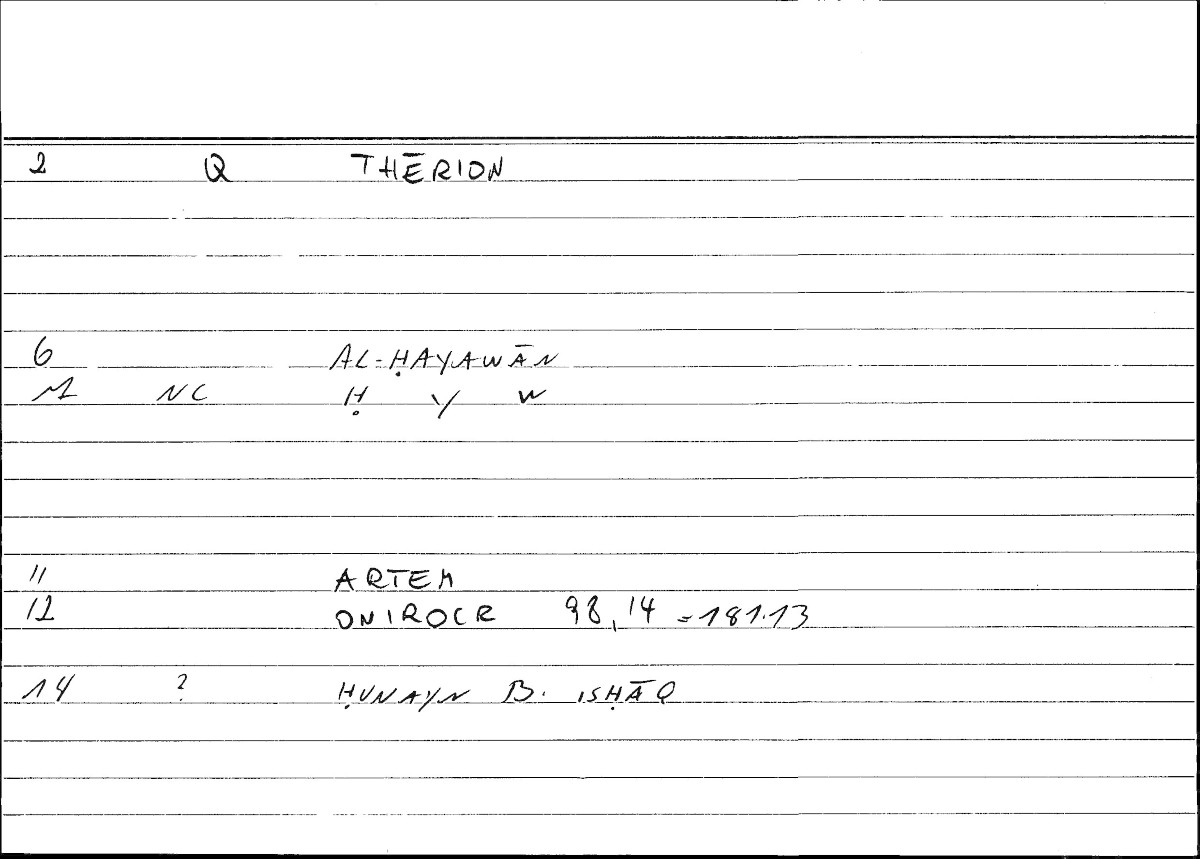 2 Q THĒRION
6 AL-ḤAYAWĀN
M NC Ḥ Y W
11 ARTEM
12 ONIROCR 98,14 = 181.13
14 ? ḤUNAYN B. ISḤĀQ